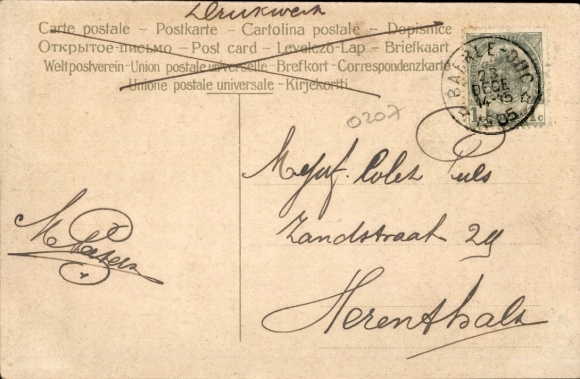 Drukwerk
Carte postale – Postkarte – Cartolina postale – Dopisnice
Открытое письмо – Post card – Levelező-Lap – Briefkaart
Weltpostverein-Union postale universelle – Brefkort-Correspondenzkarte
Unione postale universale – Kirjekortti
BAERLE-DUC
23
DECE
14-15
1905
1c
1c
0207
Mejuf. Colet Puls
Zandstraat 29
Herenthals
M Peeters